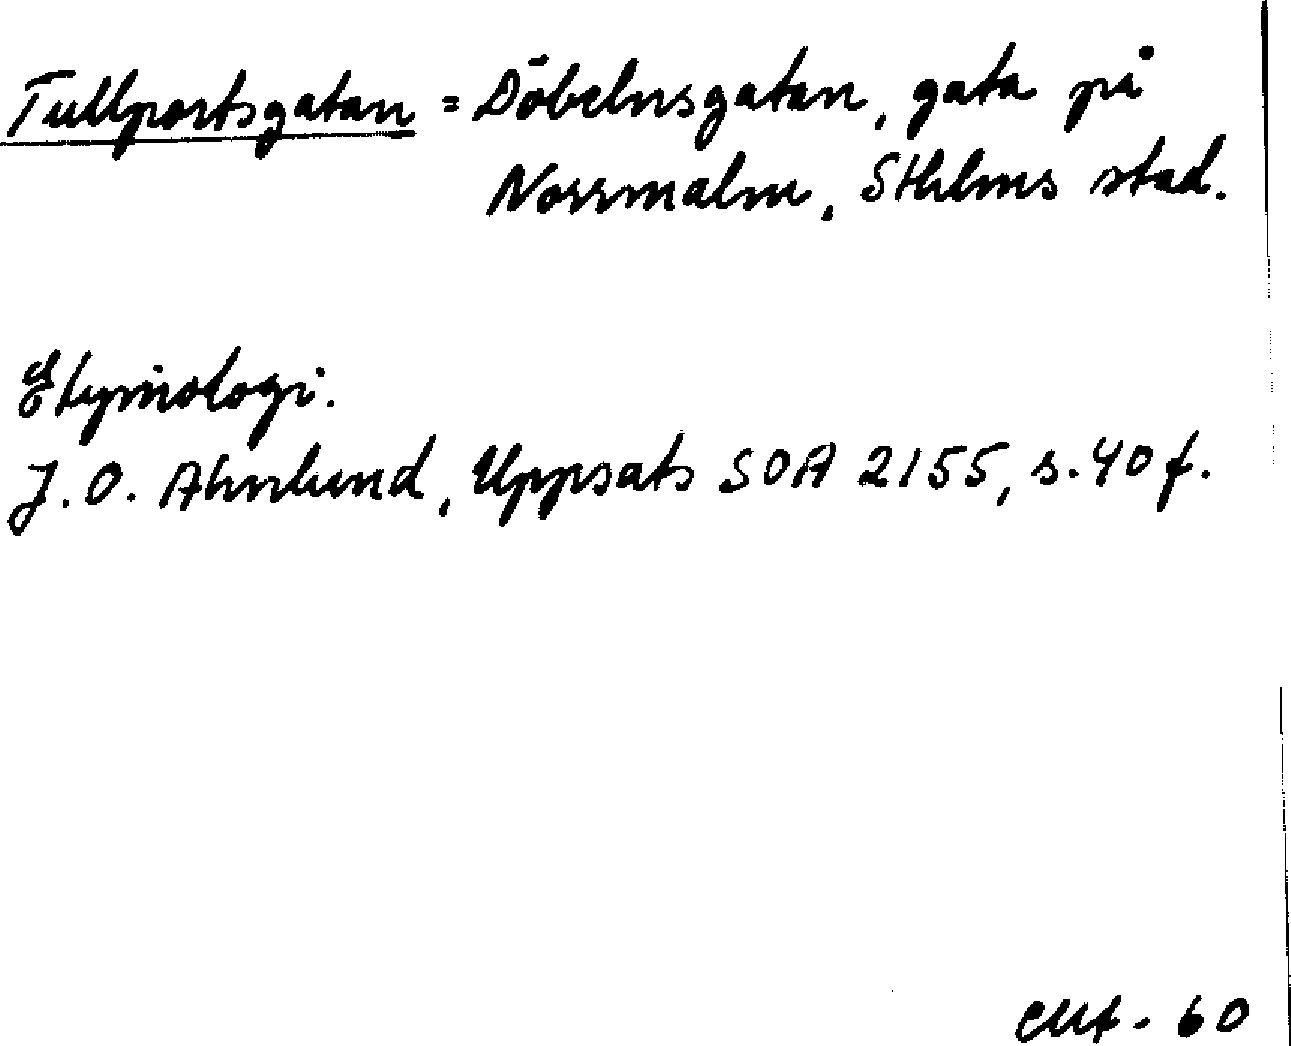 Tullportsgatan = Döbelnsgatan, gata på
Norrmalm, Sthlms stad.
Etymologi.
J. O. Ahnlund, Uppsats SOA 2155, s. 40 f.
60